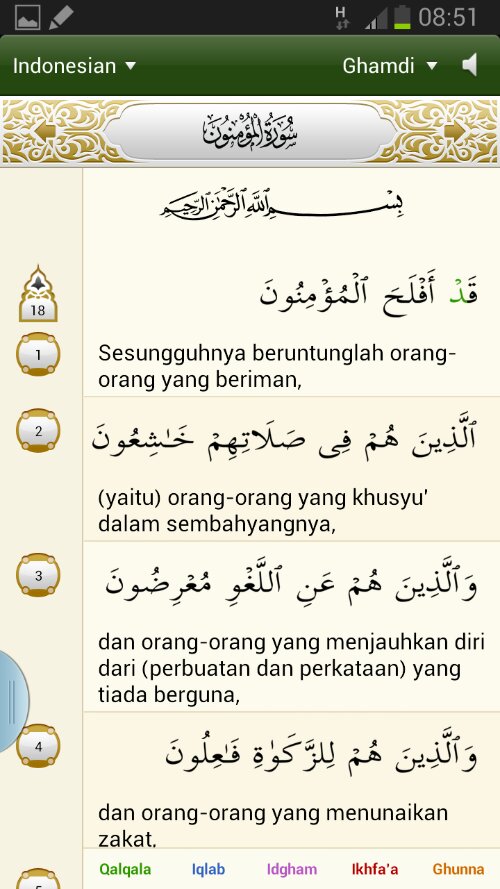 H 08:51
Indonesian Ghamdi
سُورَةُ الْمُؤْمِنُونَ
بِسْمِ ٱللَّهِ ٱلرَّحْمَٰنِ ٱلرَّحِيمِ
18
قَدْ أَفْلَحَ ٱلْمُؤْمِنُونَ
1
Sesungguhnya beruntunglah orang-
orang yang beriman,
2
ٱلَّذِينَ هُمْ فِى صَلَاتِهِمْ خَٰشِعُونَ
(yaitu) orang-orang yang khusyu'
dalam sembahyangnya,
3
وَٱلَّذِينَ هُمْ عَنِ ٱللَّغْوِ مُعْرِضُونَ
dan orang-orang yang menjauhkan diri
dari (perbuatan dan perkataan) yang
tiada berguna,
4
وَٱلَّذِينَ هُمْ لِلزَّكَوٰةِ فَٰعِلُونَ
dan orang-orang yang menunaikan
zakat,
5
Qalqala Iqlab Idgham Ikhfa'a Ghunna